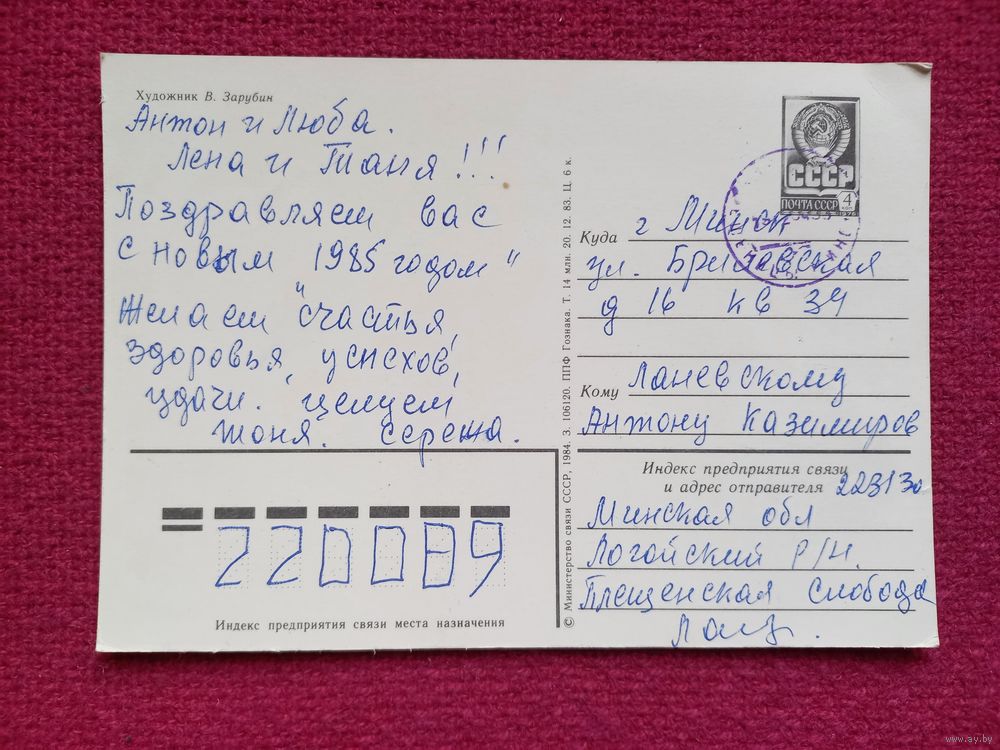 Художник В. Зарубин
Антон и Люба.
Лена и Таня!!!
Поздравляем вас
с новым 1985 годом"
Желаем "счастья,
здоровья, успехов,
удачи. целуем
Тоня. Сережа.
220089
Индекс предприятия связи места назначения
© Министерство связи СССР, 1984. З. 106120. ППФ Гознака. Т. 14 млн. 20. 12. 83. Ц. 6 к.
СССР
ПОЧТА СССР 4 КОП
1976
Куда г Минск
ул.
д 16 кв 34
Кому Ланевскому
Антону Казимиров
Индекс предприятия связи
и адрес отправителя 223130
Минская обл
Логойский р/н.
Плещенская слобода
www.ay.by